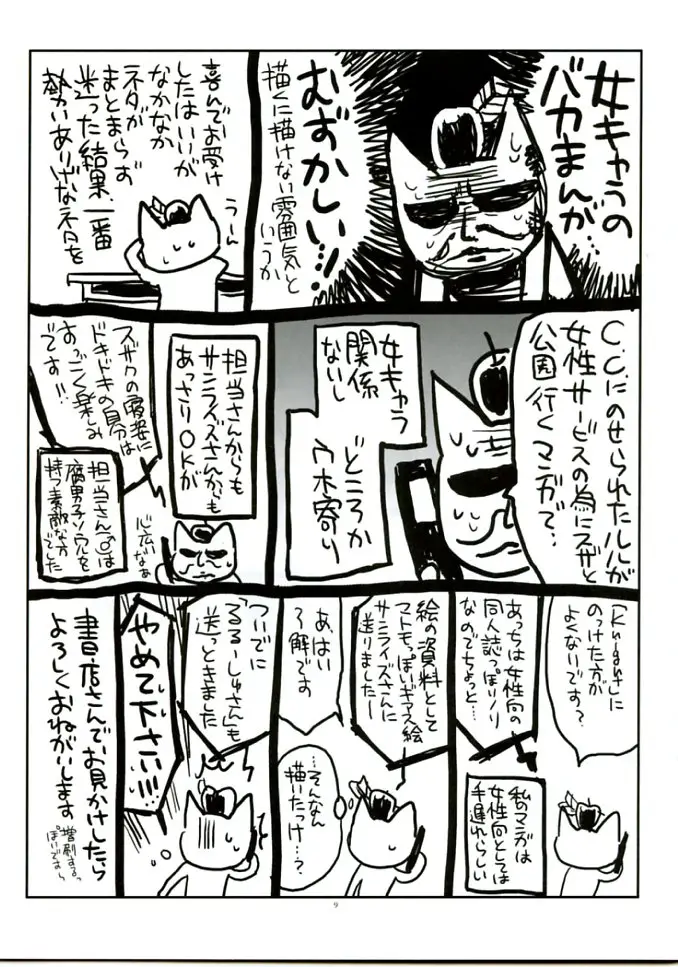 女キャラの
バカまんが
むずかしい…!!
描くに描けない雰囲気と
いうか
喜んでお受け
したはいいが
なかなか
ネタが
まとまらず
迷った結果、一番
勢いありげなネタを
うーん
C.C.にのせられたルルが
女性サービスの為にスザと
公園行くマンガで、
女キャラ
関係
ないし
どころか
ウホ寄り
担当さんからも
サンライズさんからも
あっさりOKが
スザクの
ドキドキの自分は
すっごく楽しみ
です!!
心広いなぁ
担当さん(♂)は
腐男子ソウルを
持つ素敵な方
でした
「Knight」に
のっけた方が
よくないです?
あっちは女性向の
同人誌っぽいノリ
なのでちょっと…
私のマンガは
女性向としては
手遅れらしい
絵の資料として
マトモっぽいギアス絵
サンライズさんに
送りましたー
あ、はい
了解です
…そんなん
描いたっけ…?
ついでに
「るるーしゅさん」も
送っときました
やめて下さい!!!
書店さんでお見かけしたら
よろしくおねがいします
増刷するっ
ぽいですよ
9